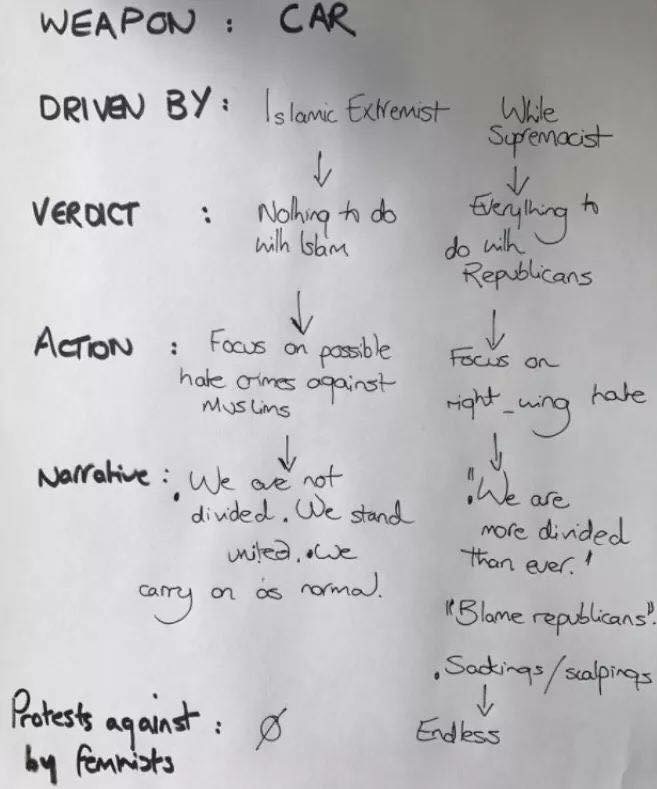 WEAPON : CAR
DRIVEN BY : Islamic Extremist
White
Supremacist
VERDICT : Nothing to do
with Islam
Everything to
do with
Republicans
ACTION : Focus on possible
hate crimes against
Muslims
Focus on
right_wing hate
Narrative : . We are not
divided. We stand
united. . We
carry on as normal.
"We are
more divided
than ever."
"Blame republicans".
. Sackings/scalpings
Protests against :
by feminists
Ø
Endless